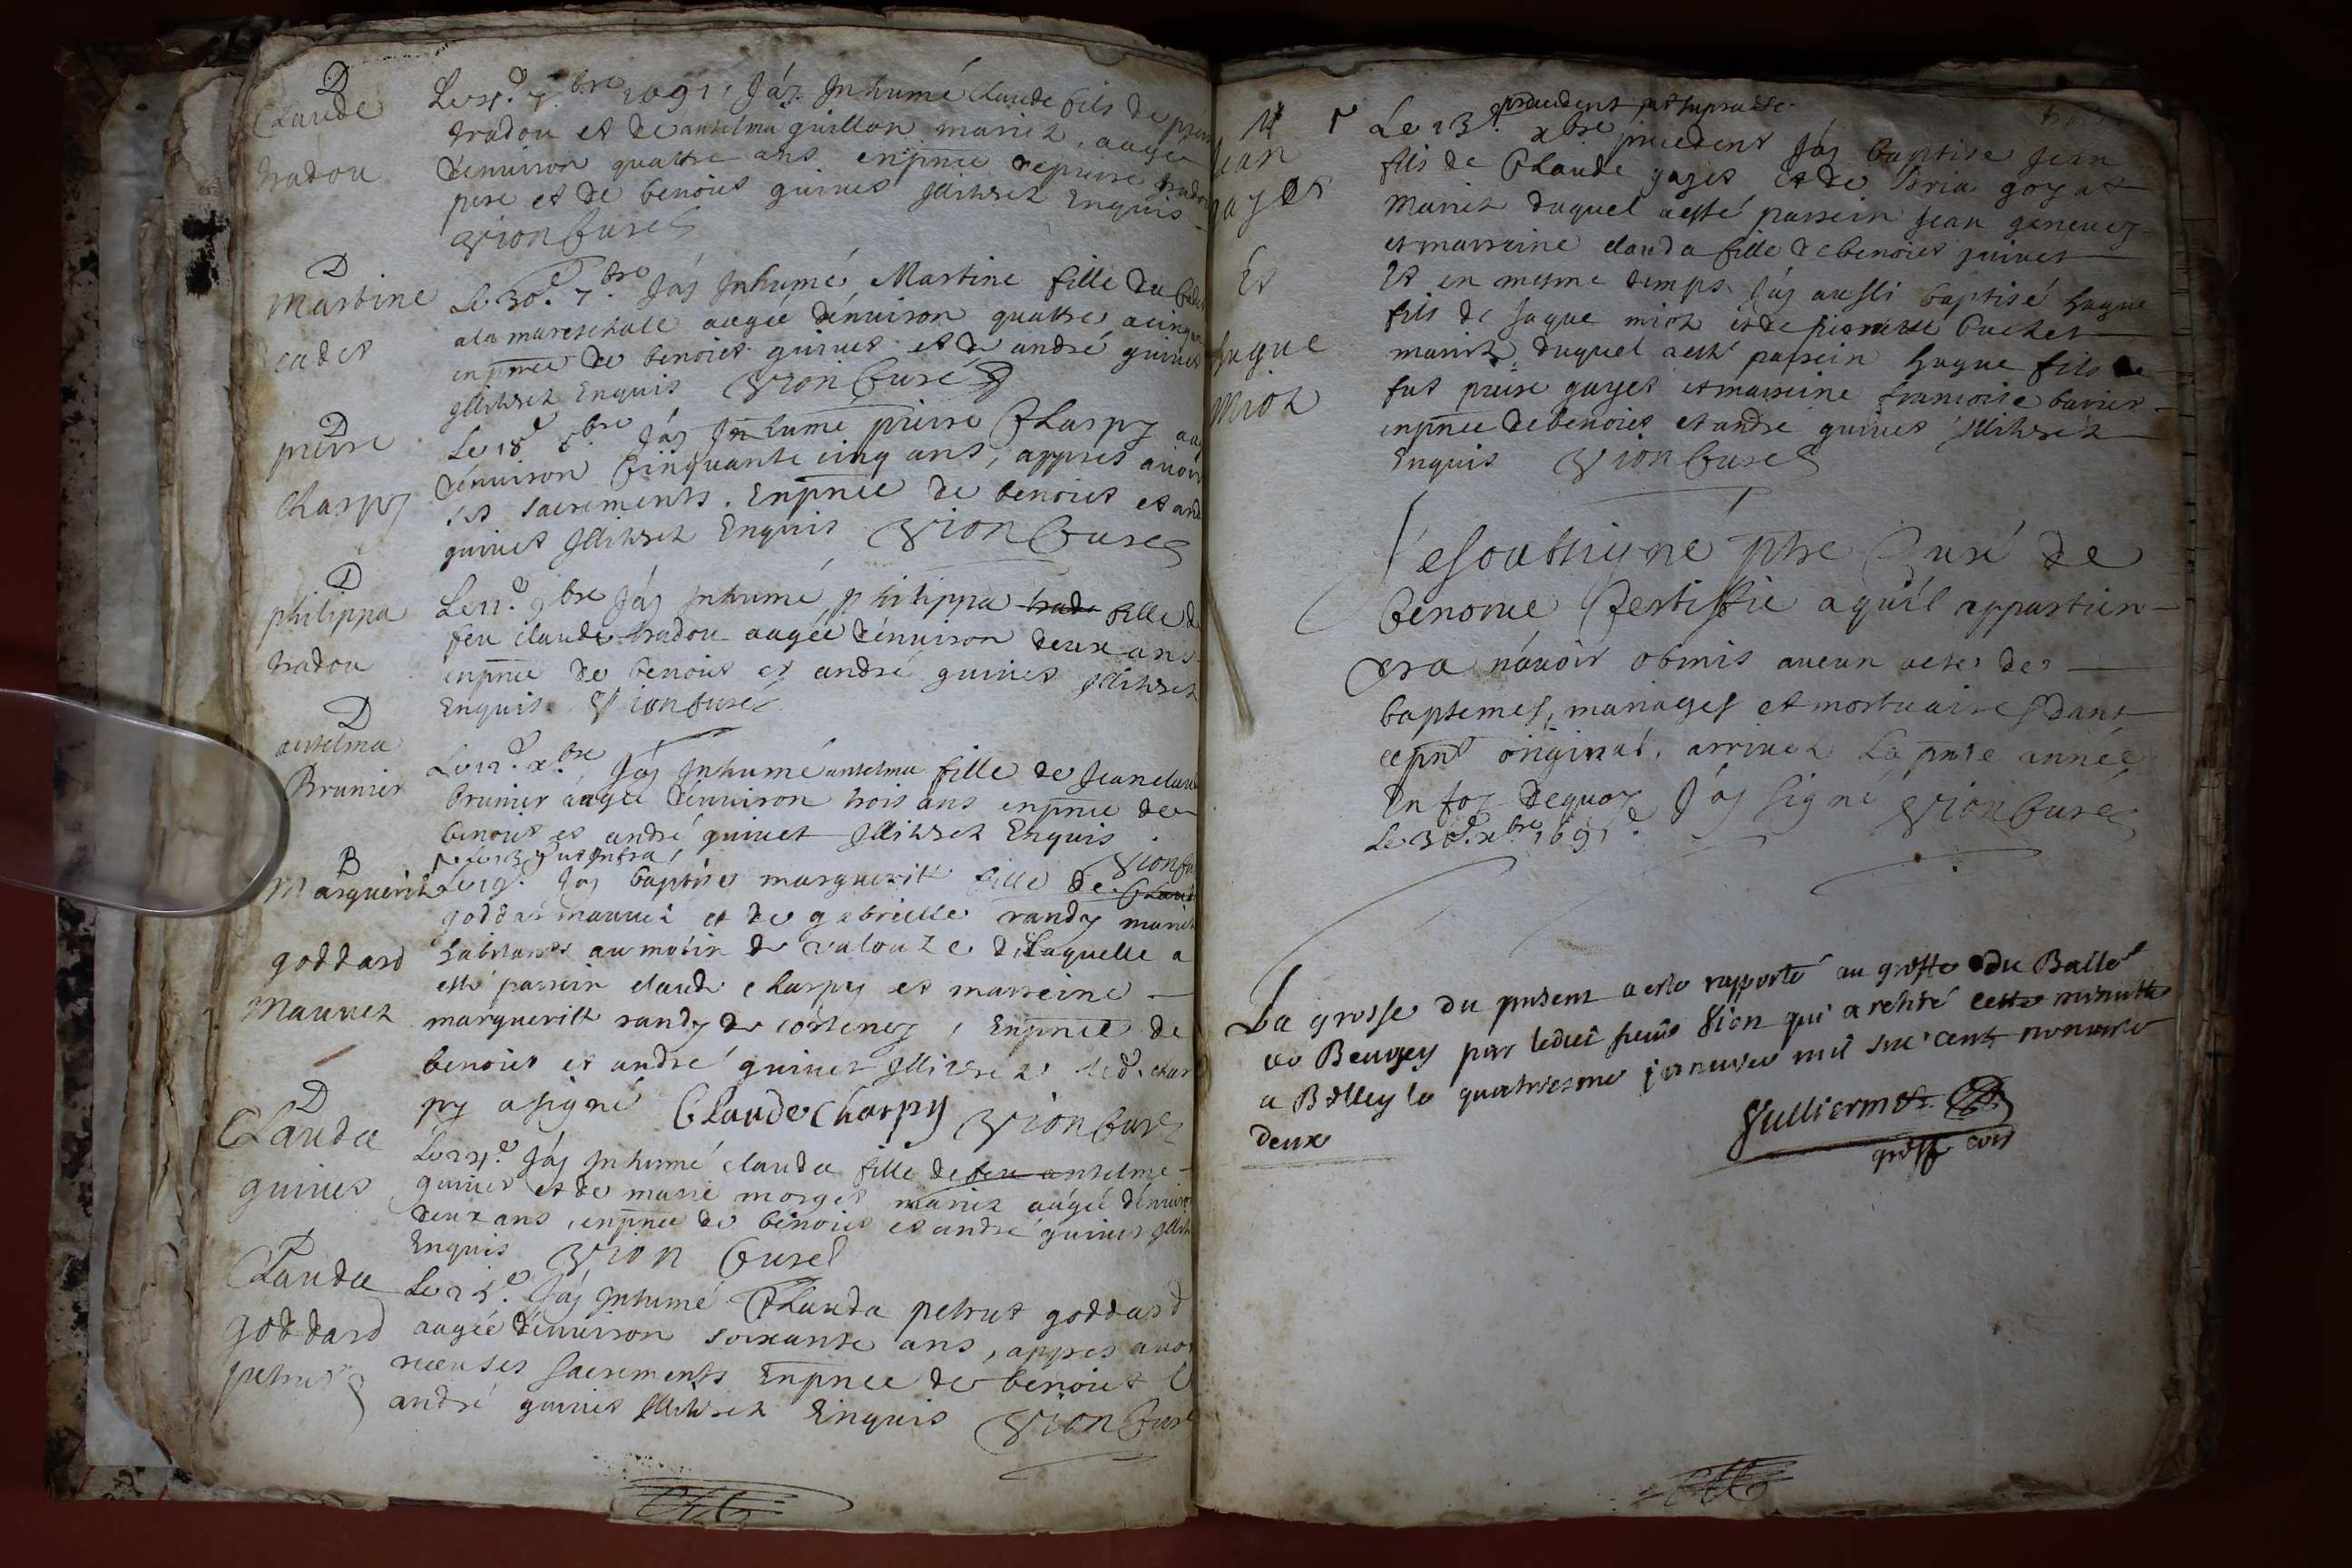 D
Claude
tradou
Le 7bre 1691, J'áy Jnhumé claude fils de
tradou et de antelma guillon mariez, augé
d'enuiron quattre ans enpnce de pierre tradou
pere et de benoict guinet Jllitrez Enquis
Vion Curé
D
Martine
cadet
Le 30e 7bre J'áy Jnhumé Martine fille du
a la mareschale augée d'enuiron quattre a cinq
enpnce de benoict guinet et de andré guinet
Jllitrez Enquis Vion Curé
D
pierre
charpy
Le 18e 8bre J'áy Jnhumé pierre Charpy
d'enuiron Cinquante cinq ans, appres auoir
ses sacrements. Enpnce de benoict et
guinet Jllitrez Enquis Vion Curé
D
philippa
tradou
Le 11e 9bre J'áy Jnhumé philippa trado fille de
feu claude tradou augée d'enuiron deux ans
enpnce de benoict et andré guinet Jllitrez
Enquis Vion Curé
D
antelma
Brunier
Le 12e xbre J'áy Jnhumé antelma fille de Jean
brunier augée d'enuiron trois ans enpnce de
benoict et andré guinet Jllitrez Enquis
Vion
B
Marguerite
goddard
Mauuez
Le 19e J'áy baptisé marguerite fille de
goddar mauuez et de gabrielle randy mariez
habitants au molin de valouze de laquelle a
esté parrein claude charpy et marreine
marguerite randy de corteney, Enpnce de
benoict et andré guinet Jllitrez led. char
py a signé Claude Charpy Vion Curé
D
Clauda
guinet
Le J'áy Jnhumé clauda fille de feu antelme
guinet et de marie morget mariez augée d'enuiron
deux ans, enpnce de benoict et andré guinet
Enquis Vion Curé
D
Clauda
goddard
petrut
Le J'áy Jnhumé Clauda petrut goddard
augée d'enuiron soixante ans, appres auoir
receu ses sacrements Enpnce de benoict
andré guinet Jllitrez Enquis Vion Curé
Jean
gayet
Et
hugue
Mioz
Le 13e xbre precedent J'áy baptisé Jean
fils de Claude gayet et de goyat
Mariez duquel a esté parrein Jean geneuey
et marreine clauda fille de benoict guinet
Et en mesme temps J'áy aussi baptisé hugue
fils de Jaque mioz et de pierrette buchet
mariez duquel a esté parrein hugue fils de
fut pierre gayet et marreine francoise bavier
enpnce de benoict et andré guinet Jllitrez
Enquis Vion Curé
Je soubsigné ptre Curé de
benonce Certiffie a qu'il appartien-
dra n'auoir obmis aucun acte de
baptemes, mariages et mortuaires dans
ce pnt original, arriuez la pnte année
En foy dequoy J'áy signé Vion Curé
Le 31e xbre 1691
La grosse du present a este rapporté au greffe du Balle
de Beugey par ledict sieur Vion qui a retiré cette minutte
a Belley le quatriesme januier mil six cent nonante
deux
Vulliermet
greff com